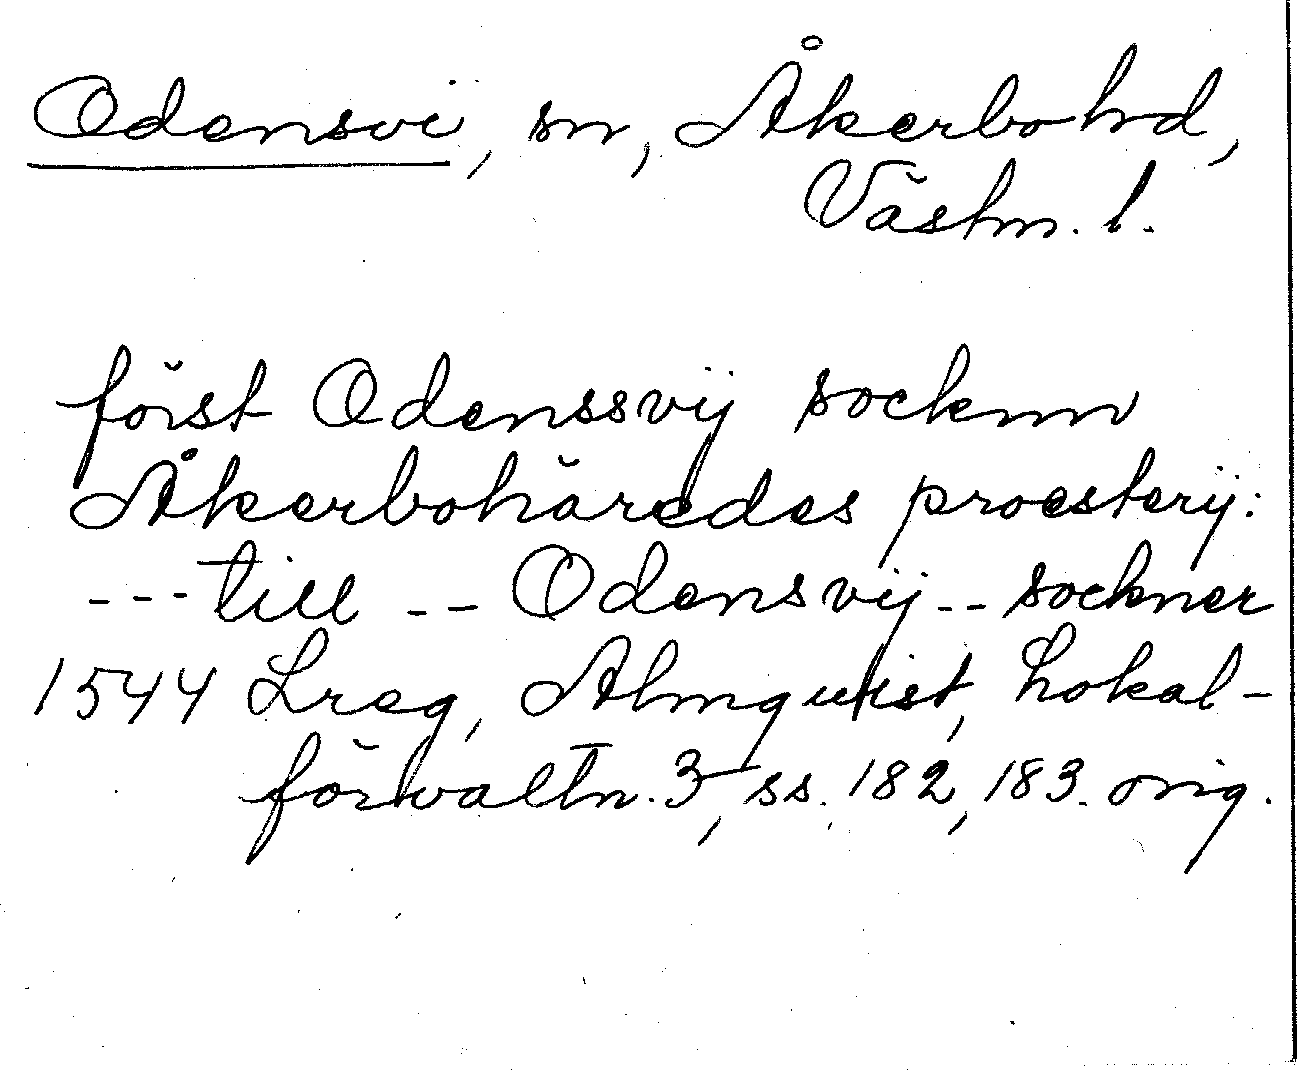 Odensvi, sn, Åkerbo hd,
Västm. l.
först Odenssvij socknn
Åkerbohäredes proesterij:
--- till -- Odensvij -- sockner
1544 Lreg, Almquist, Lokal-
förvaltn. 3, ss. 182, 183. orig.